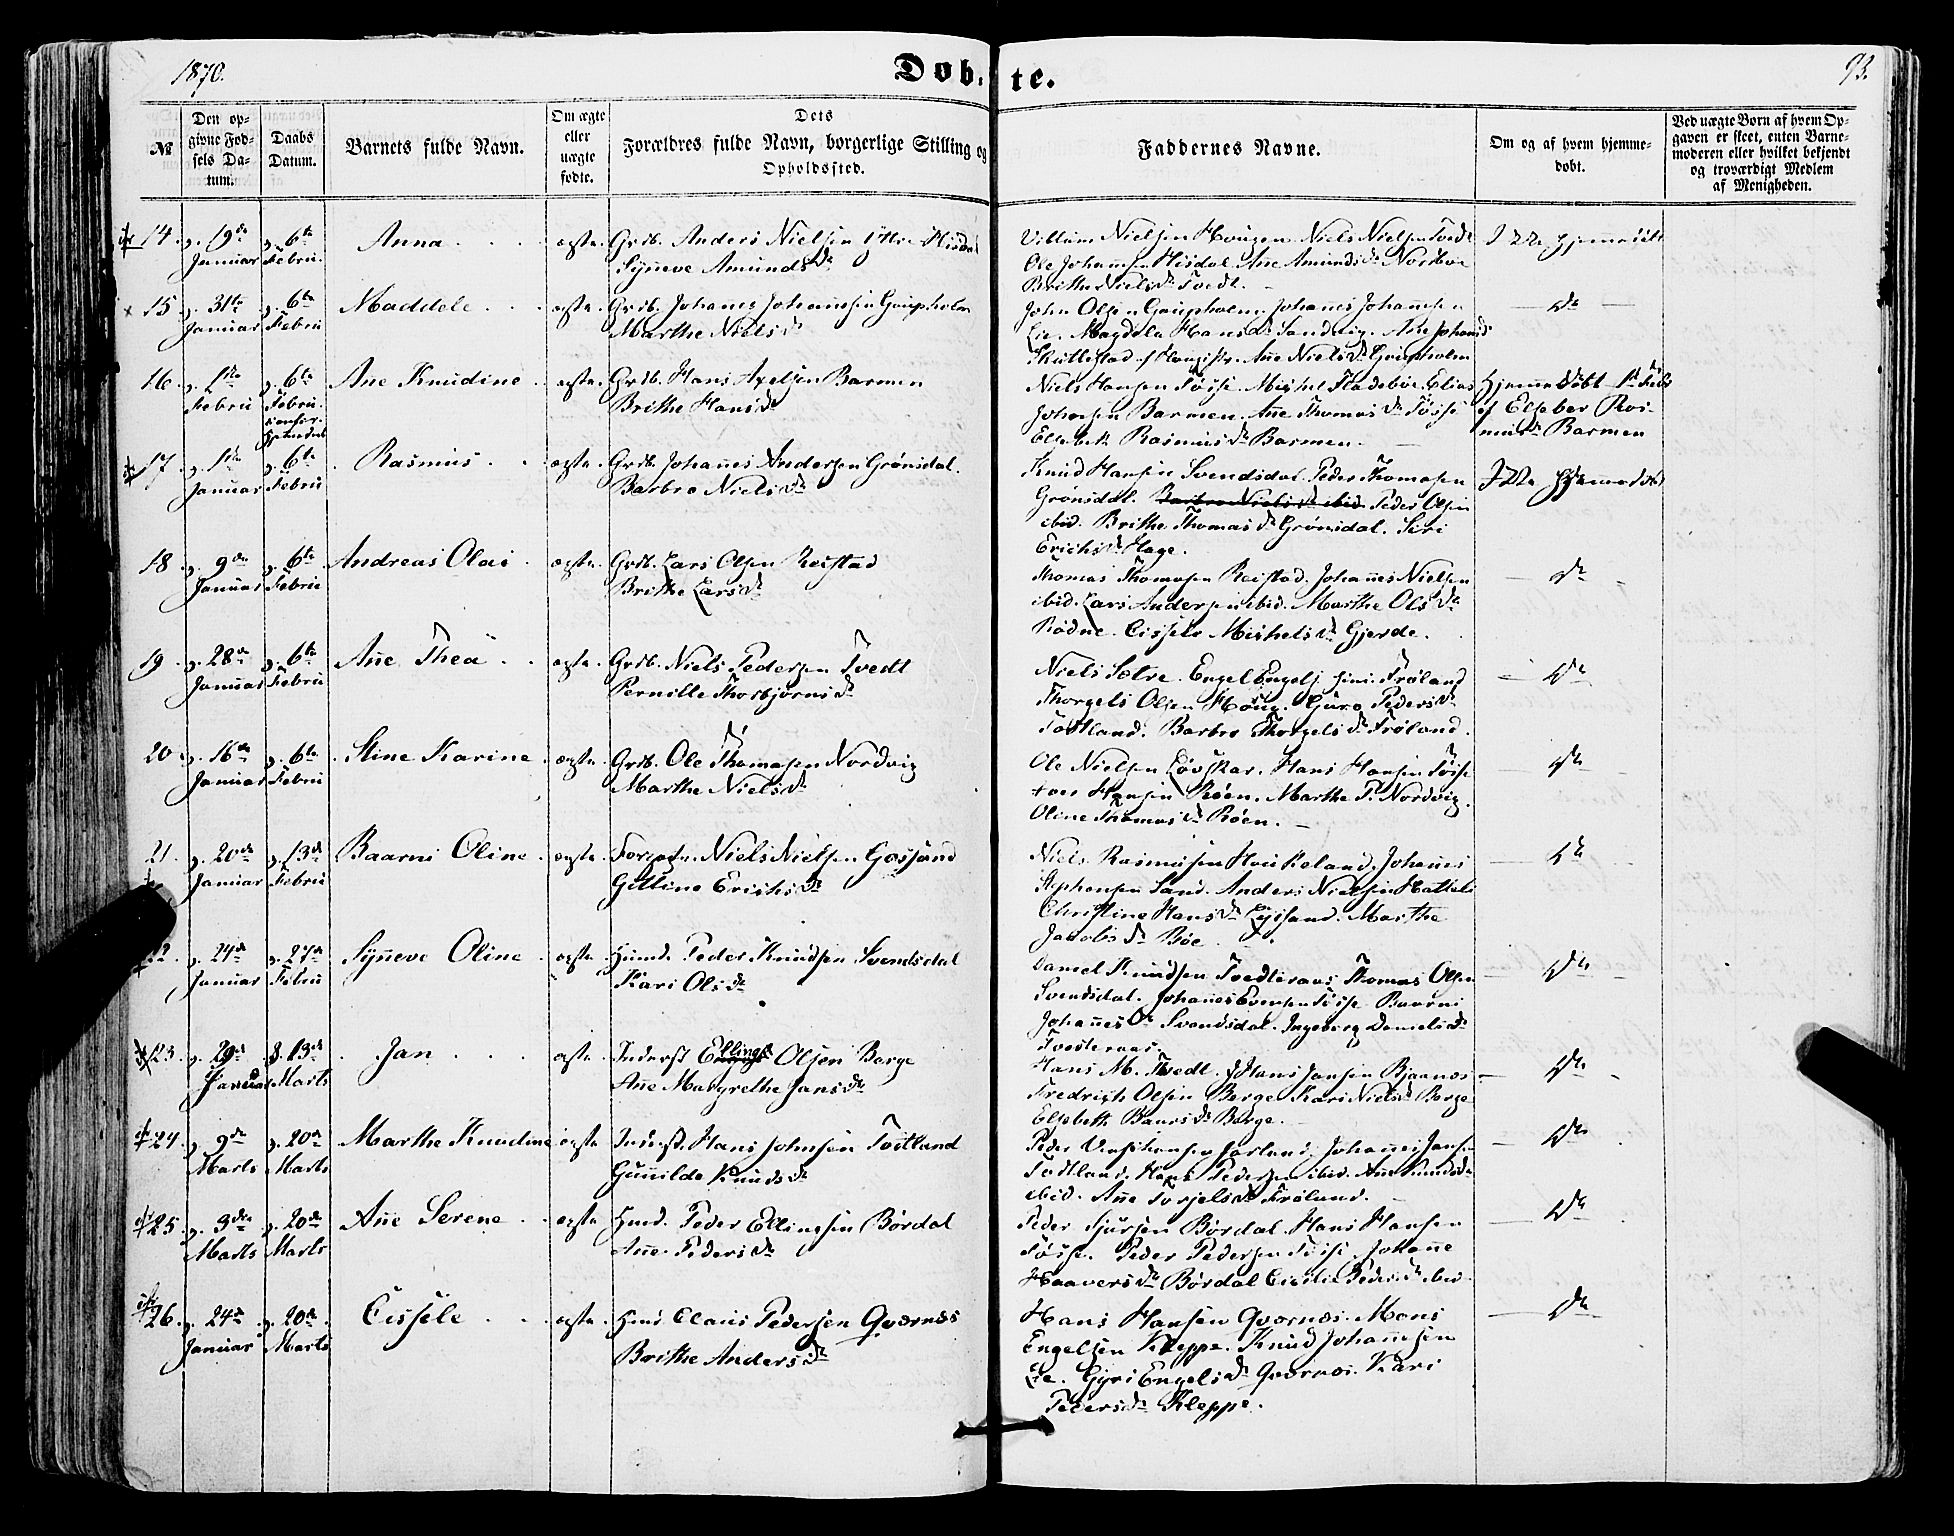 1870.
Døbte.
93.
№
Den opgivne Fødsels Datum.
Daabs Datum.
Barnets fulde Navn.
Om ægte eller uægte fødte.
Dets Forældres fulde Navn, borgerlige Stilling og Opholdssted.
Faddernes Navne.
Om og af hvem hjemmedøbt.
Ved uægte Børn af hvem Opgaven er skeet, enten Barnemoderen eller hvilket bekjendt og troværdigt Medlem af Menigheden.
14. 19de Januar 6te Febru. Anna ægte. Grdb. Anders Nielsen
Synneve Amundsdr
Nielsen Houg Niels Nielsen Tvedt
Ole Johannsen Hisdal. Ane Amundsdr Nordbøe
Brithe Nielsdr Tvedt.
Ikke hjemmedøbt
15 31te Januar 6te Febru Maddele ægte. Grdb. Johanes Johannesen Gaupholm
Marthe Nielsdr
John Olsen Gaupholm. Johannes Johannsen
Lie. Magdela Hansdr Sandvig. Ane
Ane Nielsdr Gaupholm
do
16 1ste Febru 6te Febru. Ane Knudine ægte. Grdb. Hans Axelsen Barmen
Brithe Hansdr
Niels Hansen Tøsse. Michel Elias
Johnsen Barmen. Ane Thomasdr Tøsse
Elsebeth Rasmusdr Barmen.
Hjemmedøbt 1te Febr
af Elseber Rasmusdr Barmen
17 1ste Januar 6te Febru Rasmus ægte. Grdb. Johannes Andersen Grønsdal.
Barbro Nielsdr
Knud Hansen Svendsdal. Peder Thomasen
Grønsdal. Barbro Nielsdr ibid Peder Olsen
ibid. Brithe Thomasdr Grønsdal. Siri
Erichsdr Hage.
Ikke hjemmedøbt
18 9de Januar 6te Febru Andreas Olai ægte. Grdb. Lars Olsen Reistad
Brithe Larsdr
Thomas Thomasen Reistad. Johannes Nielsen
ibid. Lars Andersen ibid. Marthe Olsdr
Rødne. Cissele Michelsdr Gjerde.
do
19 28de Januar 6te Febru Ane Thea ægte Grdb. Niels Pedersen Tvedt
Pernille Thorbjørnsdr
Niels Sætre. Engel Frøland
Thorgels Olsen Houg. Guro Pedersdr
Toftland. Barbro Thorgelsdr Frøland.
do
20 16de Januar 6te Febru Stine Karine ægte. Grdb. Ole Thomasen Nordvig
Marthe Nielsdr
Ole Nielsen Løvskar. Hans Hansen Tøsse
Hansen Røen. Marthe P. Nordvig.
Oline Thomasdr Røen.
do
21. 20de Januar 13de Febru Baarni Oline ægte Niels Nielsen Gossand
Gitline Erichsdr
Niels Rasmusen Johannes
Stephensen Sand. Anders Nielsen
Christine Hansdr Marthe
Jacobsdr Bøe
do
24de Januar 27de Febru Synneve Oline ægte. Huusm. Peder Knudsen Svendsdal
Kari Olsdr
Daniel Knudsen Tvedteraas Thomas Olsen
Svendsdal. Johannes Tøsse Baarni
Johannesdr Svendsdal. Ingeborg Danielsdr
Tvedteraas
do
23. 29de Januar 13de Marts Jan ægte. Inderst Ellings Olsen Berge
Ane Margrethe Jansdr
Hans M. Tvedt. Hans Jansen Bjaanæs
Fredrich Olsen Berge Kari Nielsdr Berge
Elsebeth Baarsdr Berge.
do
24. 9de Marts 20de Marts Marthe Knudine ægte Inderst. Hans Johnsen Toftland
Gunnilde Knudsdr
Peder Johannes Jansen
Toftland. Hans Pedersen ibid. Ane Knudsdr
ibid. Ane Torjelsdr Frøland.
do
25 3die Marts 20de Marts Ane Serene ægte Hmd. Peder Ellingsen Børdal
Anne Pedersdr
Peder Sjursen Børdal. Hans Hansen
Tøsse. Peder Pedersen Tøsse. Johanne
Haaversdr Børdal Cicilie Pedersdr ibid
do
26 24de Januar 20de Marts Cissele ægte. Hmd Claus Pedersen Qværnæs
Brithe Andersdr
Hans Hansen Qværnæs. Mons
Engelsen Kleppe. Knud Johannesen
Lie. Gyri Engelsdr Qværnæs. Kari
Pedersdr Kleppe.
do